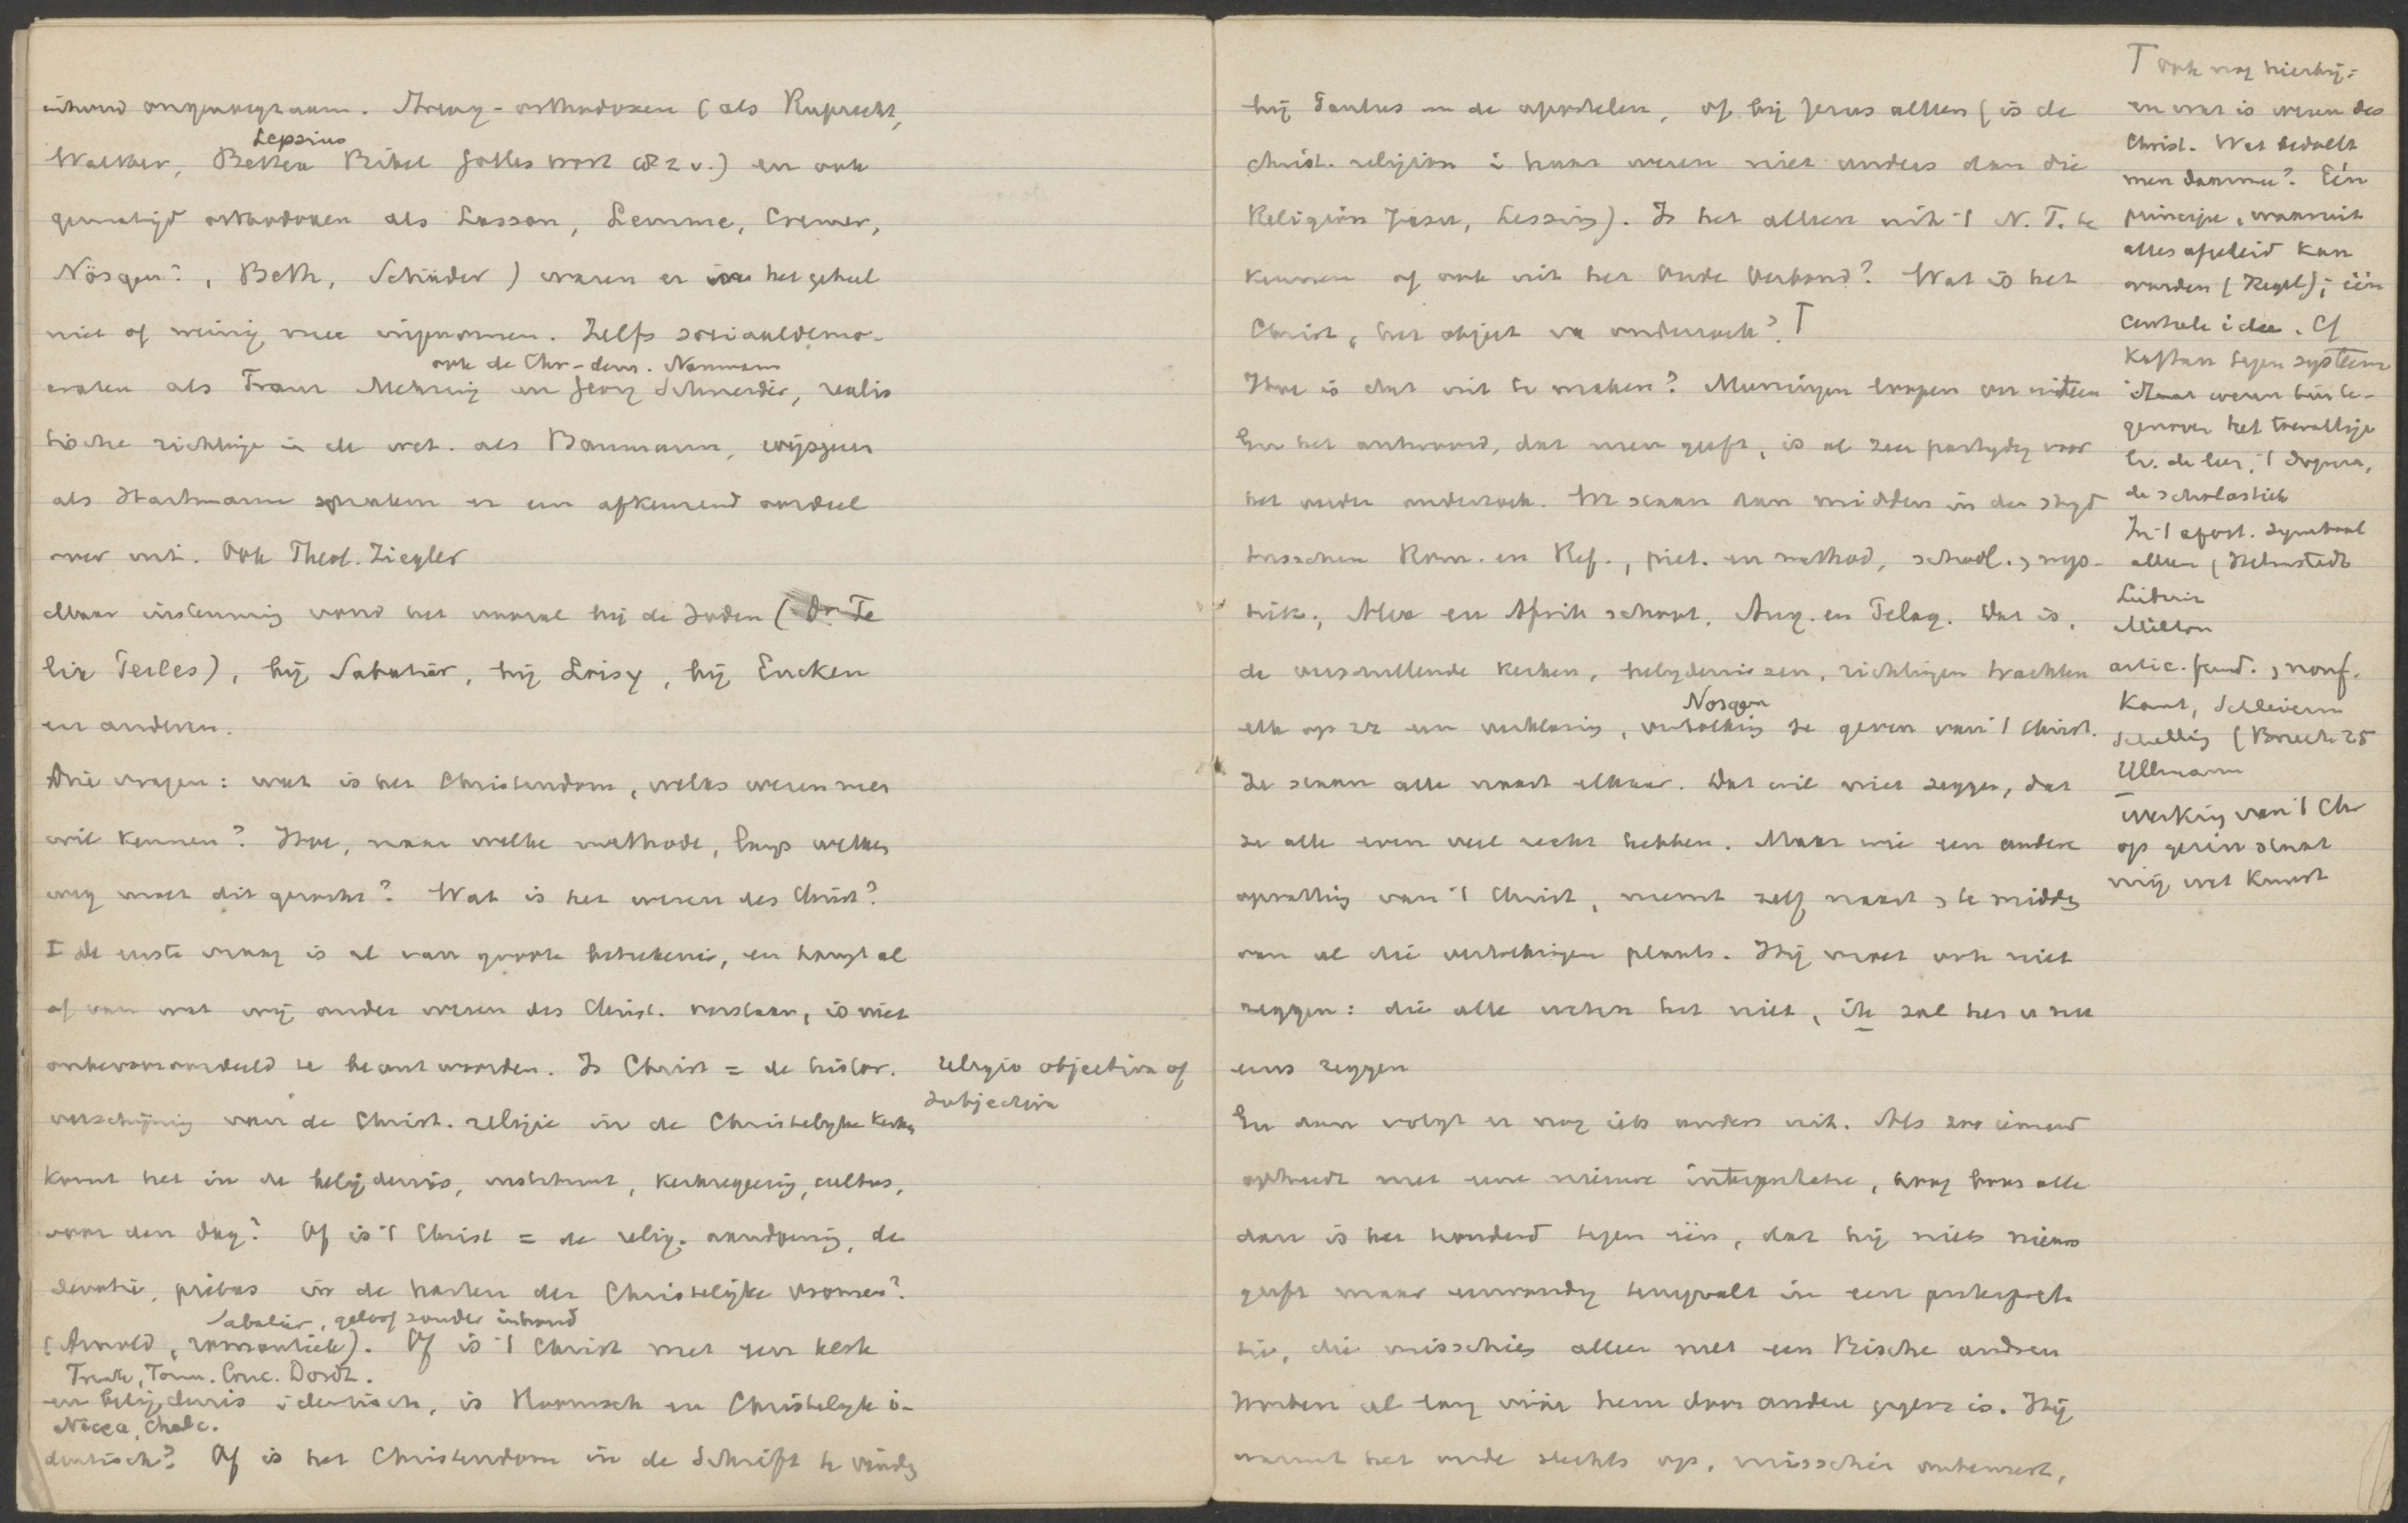 inhoud onaangenaam. Streng-orthodoxen (als Ruprecht,
Lepsius
Walther, Bettex Bibel Gottes wort enz v.) en ook
gematigd orthodoxen als Lasson, Lemme, Cremer,
Nösgen?, Beth, Schäder) waren er over het geheel
niet of weinig mee ingenomen. Zelfs sociaaldemo-
ook de Chr-dem. Naumann
craten als Franz Mehring en Georg Schneider, realis
tische richtinge in de wet. als Baumann, wijsgeer
als Hartmann spraken er een afkeurend oordeel
over uit. Ook Theol. Ziegler
Maar instemming vond het vooral bij de Joden (Dr. Fe
lix Perles), bij Sabatier, bij Loisy, bij Eucken
en anderen.
Drie vragen: wat is het Christendom, welks wezen men
wil kennen? Hoe, naar welke methode, langs welken
weg moet dit gezocht? Wat is het wezen des Christ?
I de eerste vraag is al van groote beteekenis, en hangt al
af van wat wij onder wezen des Christ. verstaan, is niet
onbevooroordeeld te beantwoorden. Is Christ = de histor.
religio objectiva of
subjectiva
verschijning van de Christ. religie in de Christelyke kerken
komt het in de belijdenis, instituut, kerkregering, cultus,
voor den dag? Of is 't Christ = de relig. aandoening, de
devotie, pietas in de harten der Christelijke vromen?
Sabatier, geloof zonder inhoud
(Arnold, romantiek). Of is 't Christ met een kerk
Trente, Form. Conc. Dordt.
en belijdenis identisch, is Roomsch en Christelyk i-
Nicea, Chalc.
dentisch? Of is het Christendom in de Schrift te vinden
bij Paulus en de apostelen, of bij Jezus alleen (is de
christ. religion i haar wezen niet anders dan die
Religion Jesu, Lessing). Is het alleen uit 't N. T. te
kennen of ook uit het Oude Verbond? Wat is het
Christ, het object v. onderzoek? T
Hoe is dat uit te maken? Meeningen loopen ver uiteen
En het antwoord, dat men geeft, is al zeer partydig voor
het verder onderzoek. We staan dan midden in den stryd
tusschen Rom. en Ref., piet. en method, schol., mys-
tiek, Alex en Afrik school, Aug. en Pelag. Dat is,
de verschillende kerken, belydenissen, richtingen trachten
Nosgen
elk op zz een verklaring, vertolking te geven van 't Christ.
Ze staan alle naast elkaar. Dat wil niet zeggen, dat
ze alle even veel recht hebben. Maar wie een andere
opvatting van 't Christ, neemt zelf naast, te midden
van al die vertolkingen plaats. Hij moet ook niet
zeggen: die alle weten het niet, ik zal het u nu
eens zeggen
En dan volgt er nog iets anders uit. Als zoo iemand
optreedt met eene nieuwe interpretatie,
dan is het honderd tegen één, dat hij niets nieuws
geeft maar eenvoudig terugvalt in een interpreta
tie, die misschien alleen met een andren
woorden al lang vóór hem door andere gegeven is. Hij
warmt het oude slechts op, misschien onbewust,
T ook nog hierbij:
en wat is wezen des
Christ. Wat bedoelt
men daarmee? Eén
principe, waaruit
alles afgeleid kan
worden (Hegel); één
centrale idee. Cf
Kaftan tegen systeem
Staat wezen hier te-
genover het toevallige
bv. de leer, 't dogma,
de scholastiek
In 't apost. symbool
alleen (Helmstedt
Milton
artic. fund., nonf.
Kant, Schleierm
Schelling (Broech 25
Ullmann
werking van 't Chr
op gezin staat
mij wet kunst